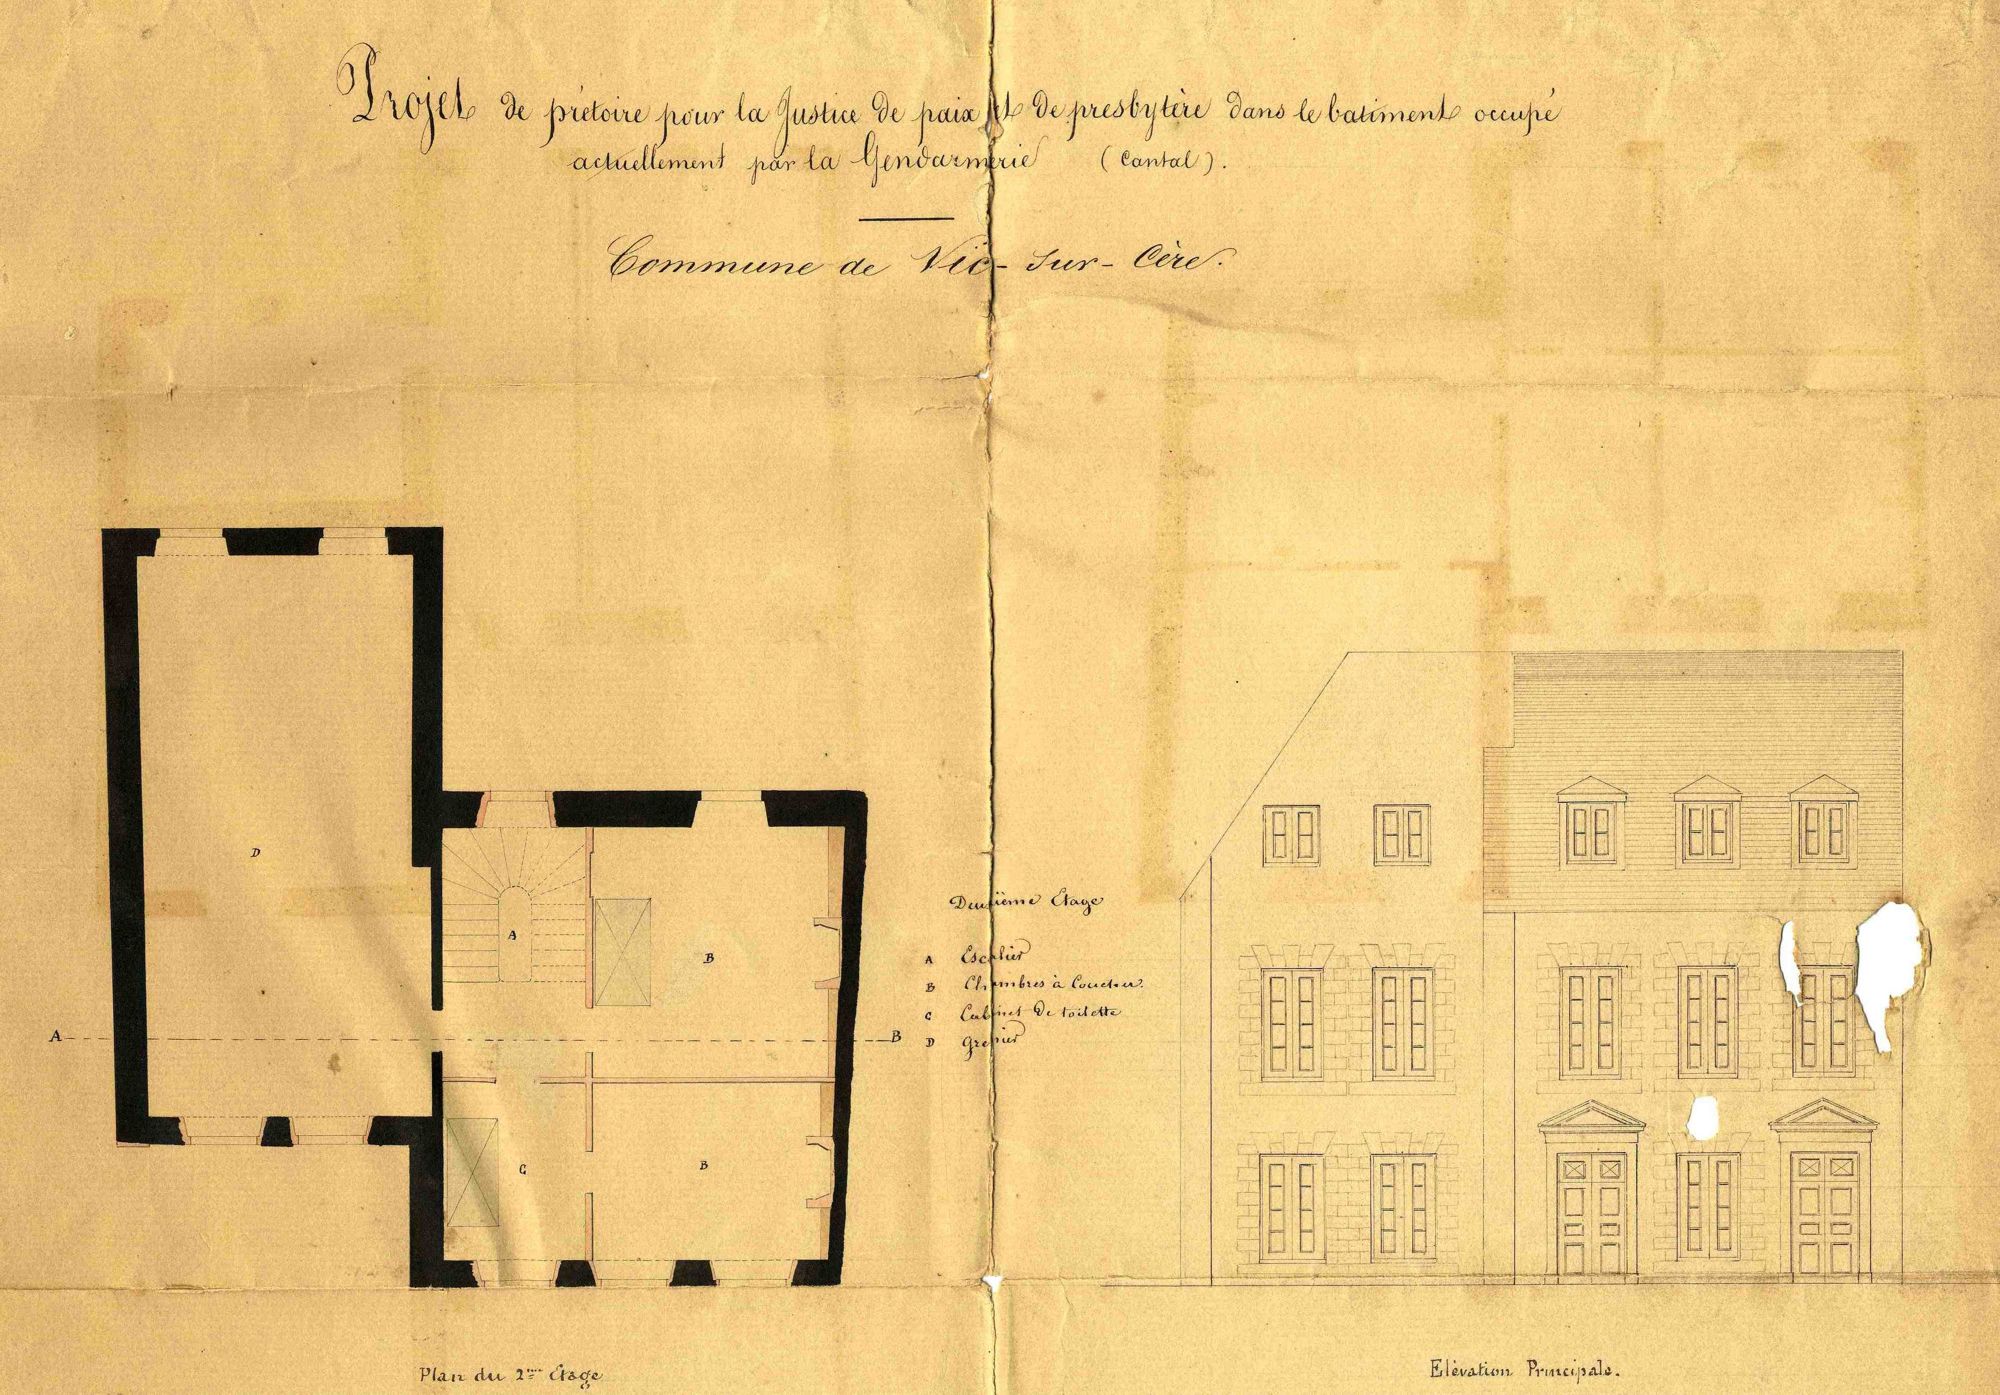 Projet de prétoire pour la Justice de paix et de presbytère dans le batiment occupé
actuellement par la Gendarmerie (Cantal).
Commune de Vic-sur-Cère.
D
A
B
A
B
C
B
Deuxième Etage
A Escalier
B Chambres à Coucher.
C Cabinet de toilette
D Grenier
Plan du 2me Etage
Elévation Principale.